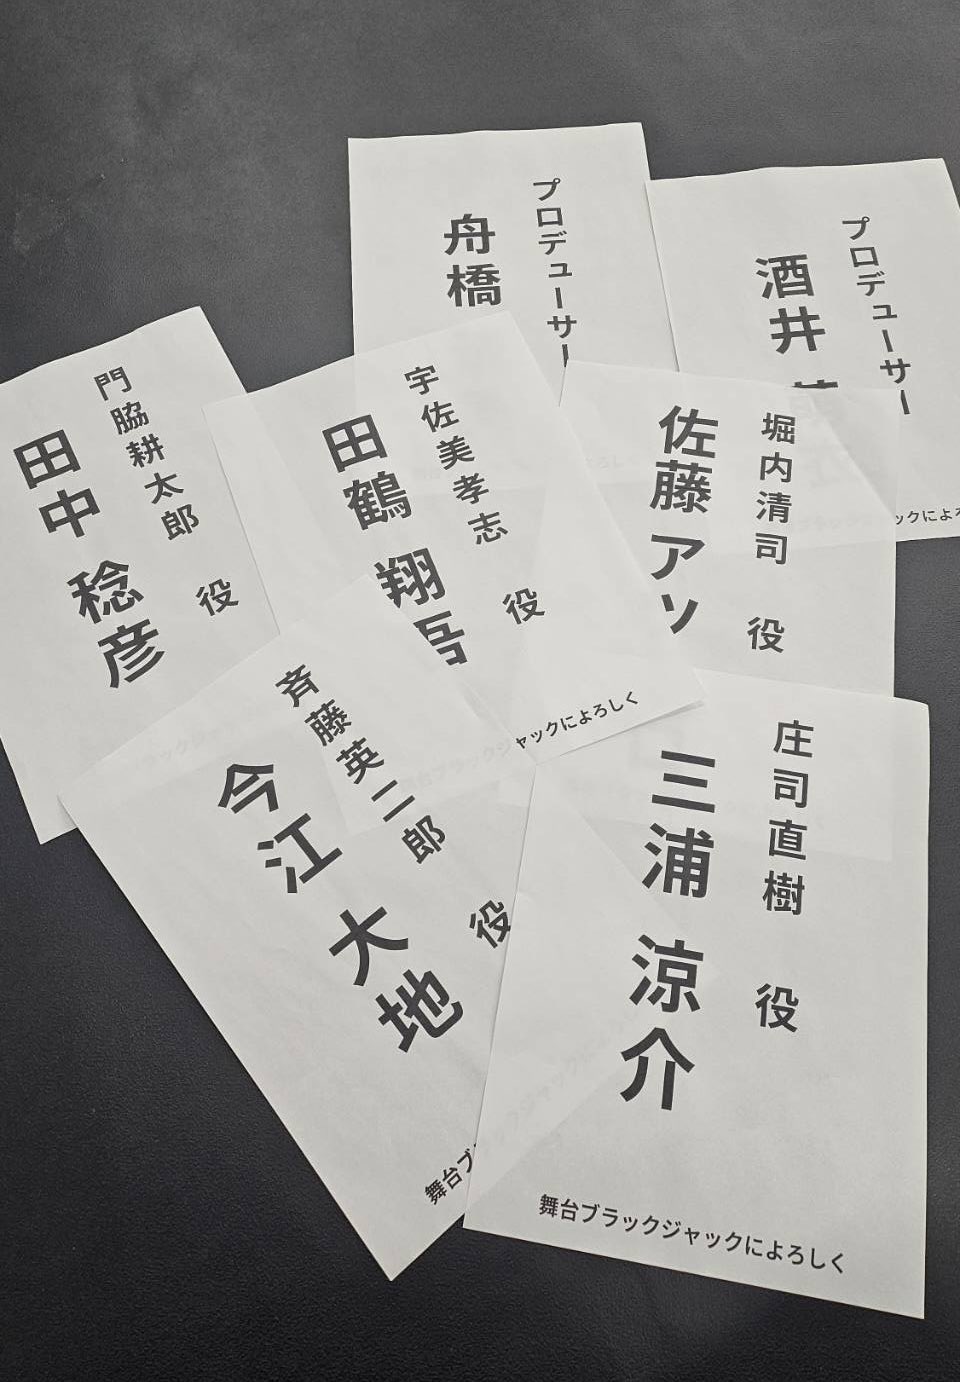 プロデューサー
舟橋
プロデューサー
酒井
ックによ
門脇耕太郎 役
田中 稔彦
宇佐美孝志 役
田鶴 翔吾
舞台ブラックジャックによろしく
堀内清司 役
佐藤 アツ
斉藤英二郎 役
今江 大地
舞台ブ
庄司直樹 役
三浦 涼介
舞台ブラックジャックによろしく